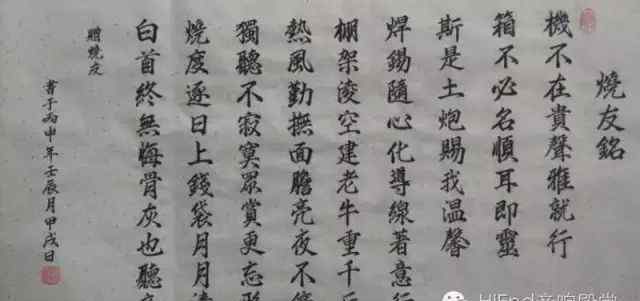 燒友銘
機不在貴聲雅就行
箱不必名順耳即靈
斯是土炮賜我温馨
焊錫隨心化導線著意
棚架淩空建老牛重千
熱風勤撫面膽亮夜不
獨聽不寂寞眾賞更忘
燒度逐日上錢袋月月
白首終無悔骨灰也聽
贈燒友
書于丙申年壬辰月甲戌日